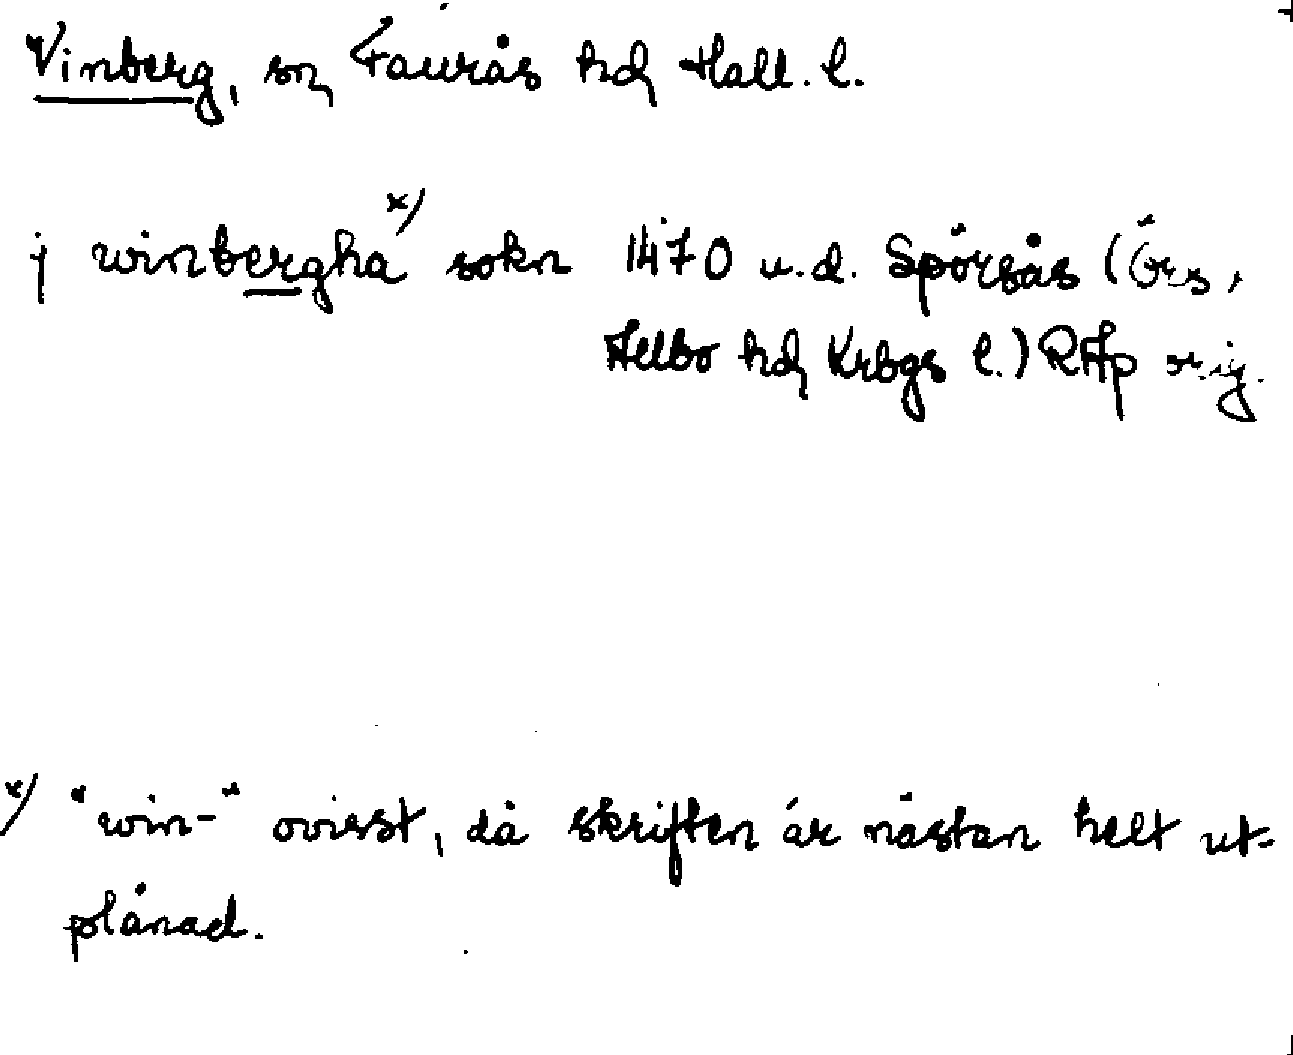 Vinberg, sn, Faurås hd, Hall. l.
j winbergha x) sokn 1470 u.d. Spörsås (Örs,
Allbo hd, Krbgs l.) RAp orig.
x) "win-" ovisst, då skriften är nästan helt ut-
plånad.